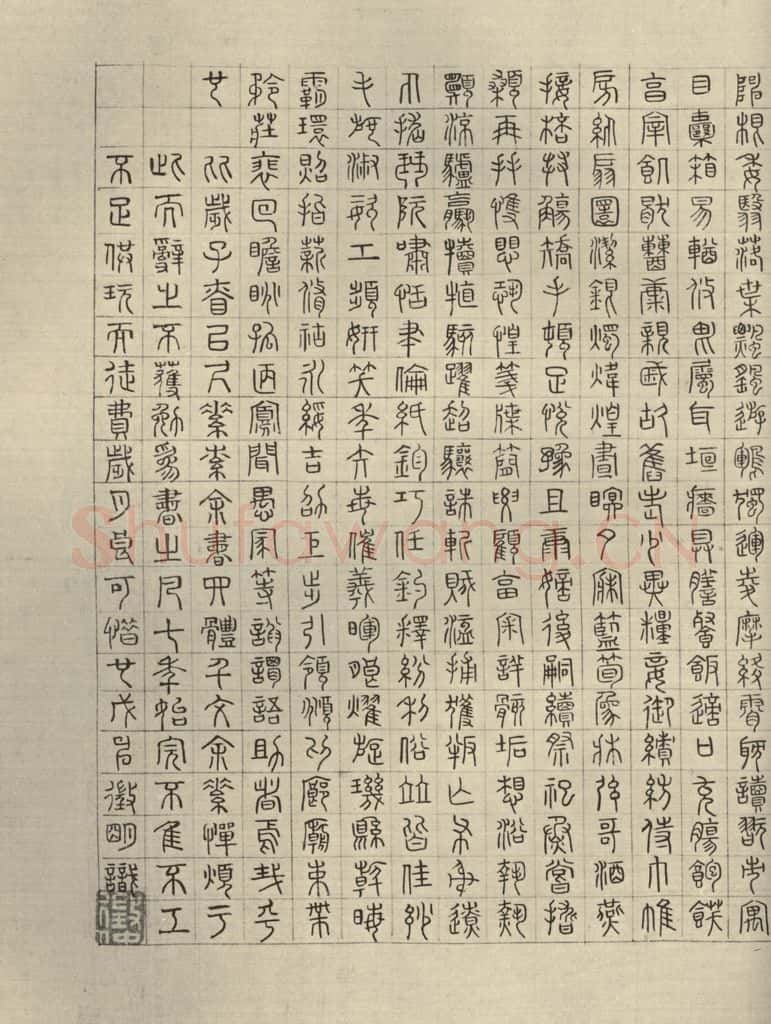 陳根委翳落葉飄颻遊鵾獨運凌摩絳霄耽讀翫市寓
目囊箱易輶攸畏屬耳垣牆具膳餐飯適口充腸飽飫
亯宰飢厭糟糠親戚故舊老少異糧妾御績紡侍巾帷
房紈扇圓潔銀燭煒煌晝眠夕寐藍筍象床弦歌酒讌
接杯舉觴矯手頓足悅豫且康嫡後嗣續祭祀烝嘗稽
顙再拜悚懼恐惶箋牒簡要顧答審詳骸垢想浴執熱
願涼驢騾犢特駭躍超驤誅斬賊盜捕獲叛亡布射遼
丸嵇琴阮嘯恬筆倫紙鈞巧任釣釋紛利俗並皆佳妙
毛施淑姿工顰妍笑年矢每催曦暉朗曜璇璣懸斡晦
魄環照指薪修祜永綏吉劭矩步引領俯仰廊廟束帶
矜莊徘徊瞻眺孤陋寡聞愚蒙等誚謂語助者焉哉乎
也
歲子春以尺素索余書四體千文余素憚煩于
此而辭之不獲勉為書之凡七年始完不惟不工
不足供玩而徒費歲月良可惜也戊徵明識
徵仲
Shufawang.CN